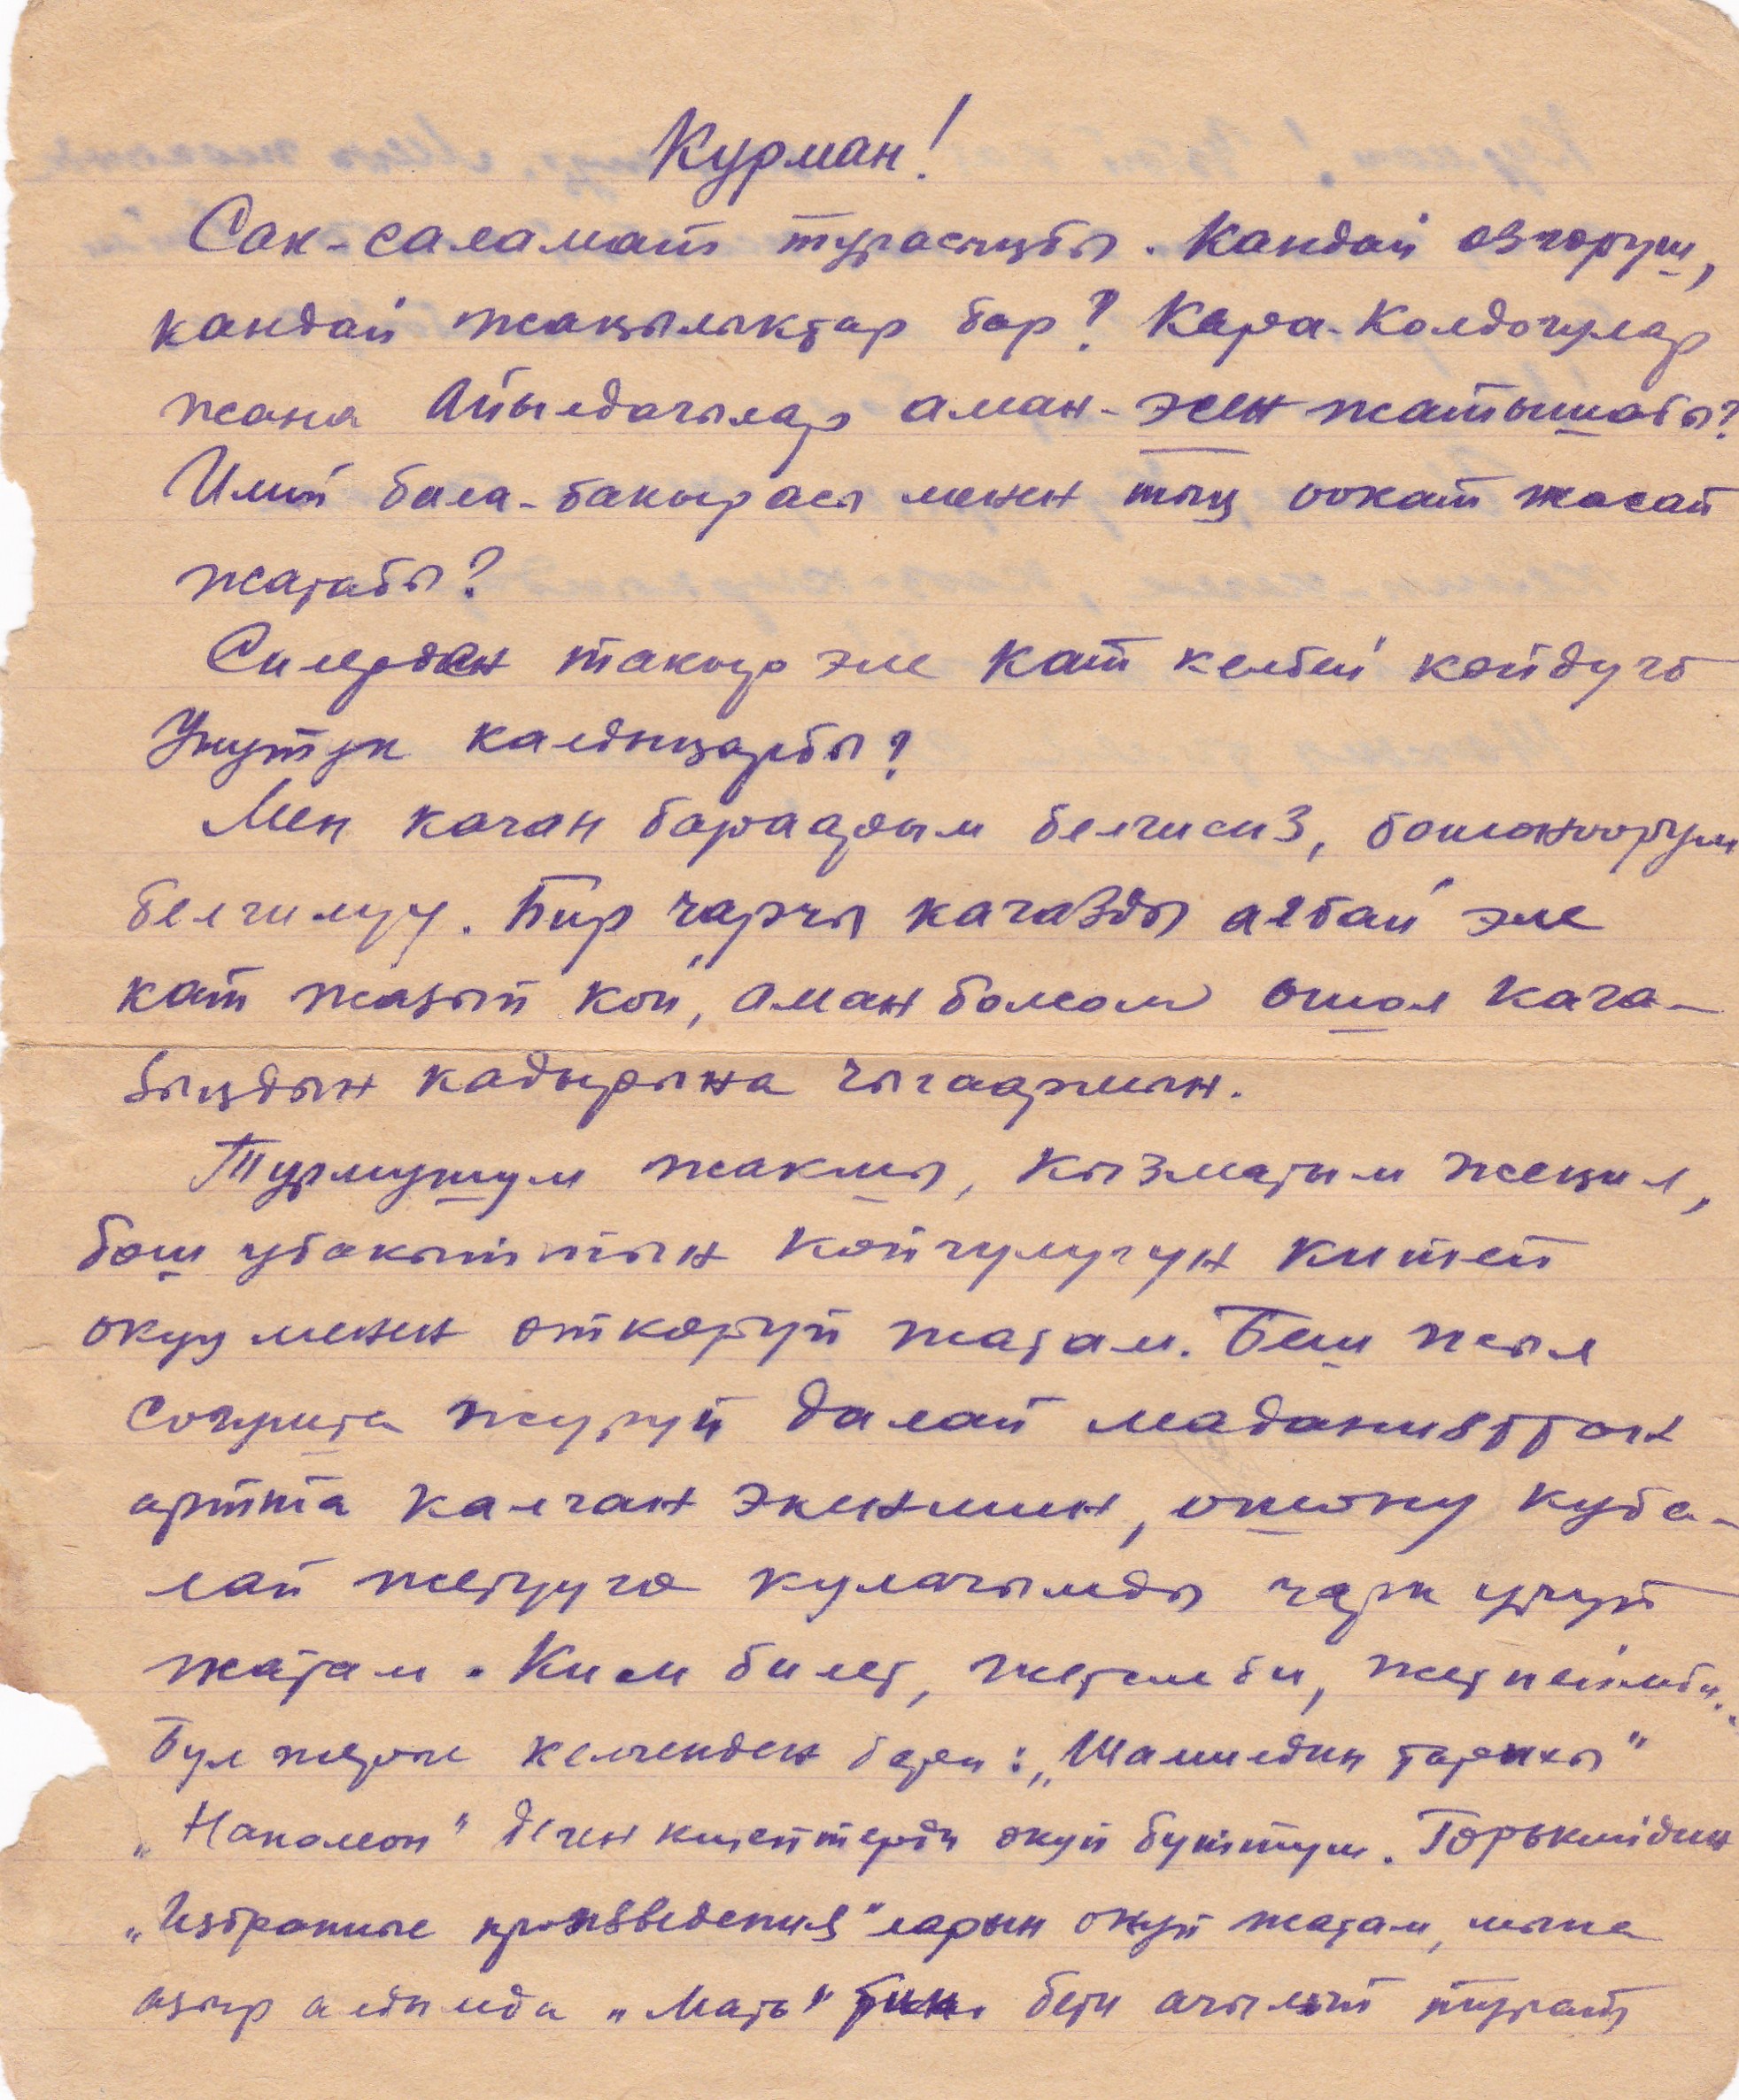 Курман!
Сак-саламат турасыңбы. Кандай өзгөрүш,
кандай жаңылыктар бар? Кара-Колдогулар
жана Айылдагылар аман-эсен жатышабы?
Илий бала-бакырасы менен тың оокат жасап
жатабы?
Силерден такыр эле кат келбей койдуго
Унутуп калдыңарбы?
Мен качан бараарым белгисиз, бошоноорум
белгилүү. Бир чарчы кагазды аябай эле
кат жазып кой, аман болсом ошол кага-
зыңдын кадырына чыгаармын.
Турмушум жакшы, кызматым жеңил,
бош убакыттын көпчүлүгүн китеп
окуу менен өткөрүп жатам. Беш жыл
согушта жүрүп далай маданияттан
артта калган экенмин, ошону куба-
лап жетүүгө кулачымды чарк уруп
жатам. Ким билет, жетемби, жетпеймби..
Бул жерге келгенден бери: „Шамилдин тарыхы"
„Наполеон" деген китептерди окуп бүттүм. Горькийдин
„Избранные произведения"ларын окуп жатам, мына
азыр алдымда „Мать" бети ачылып турат